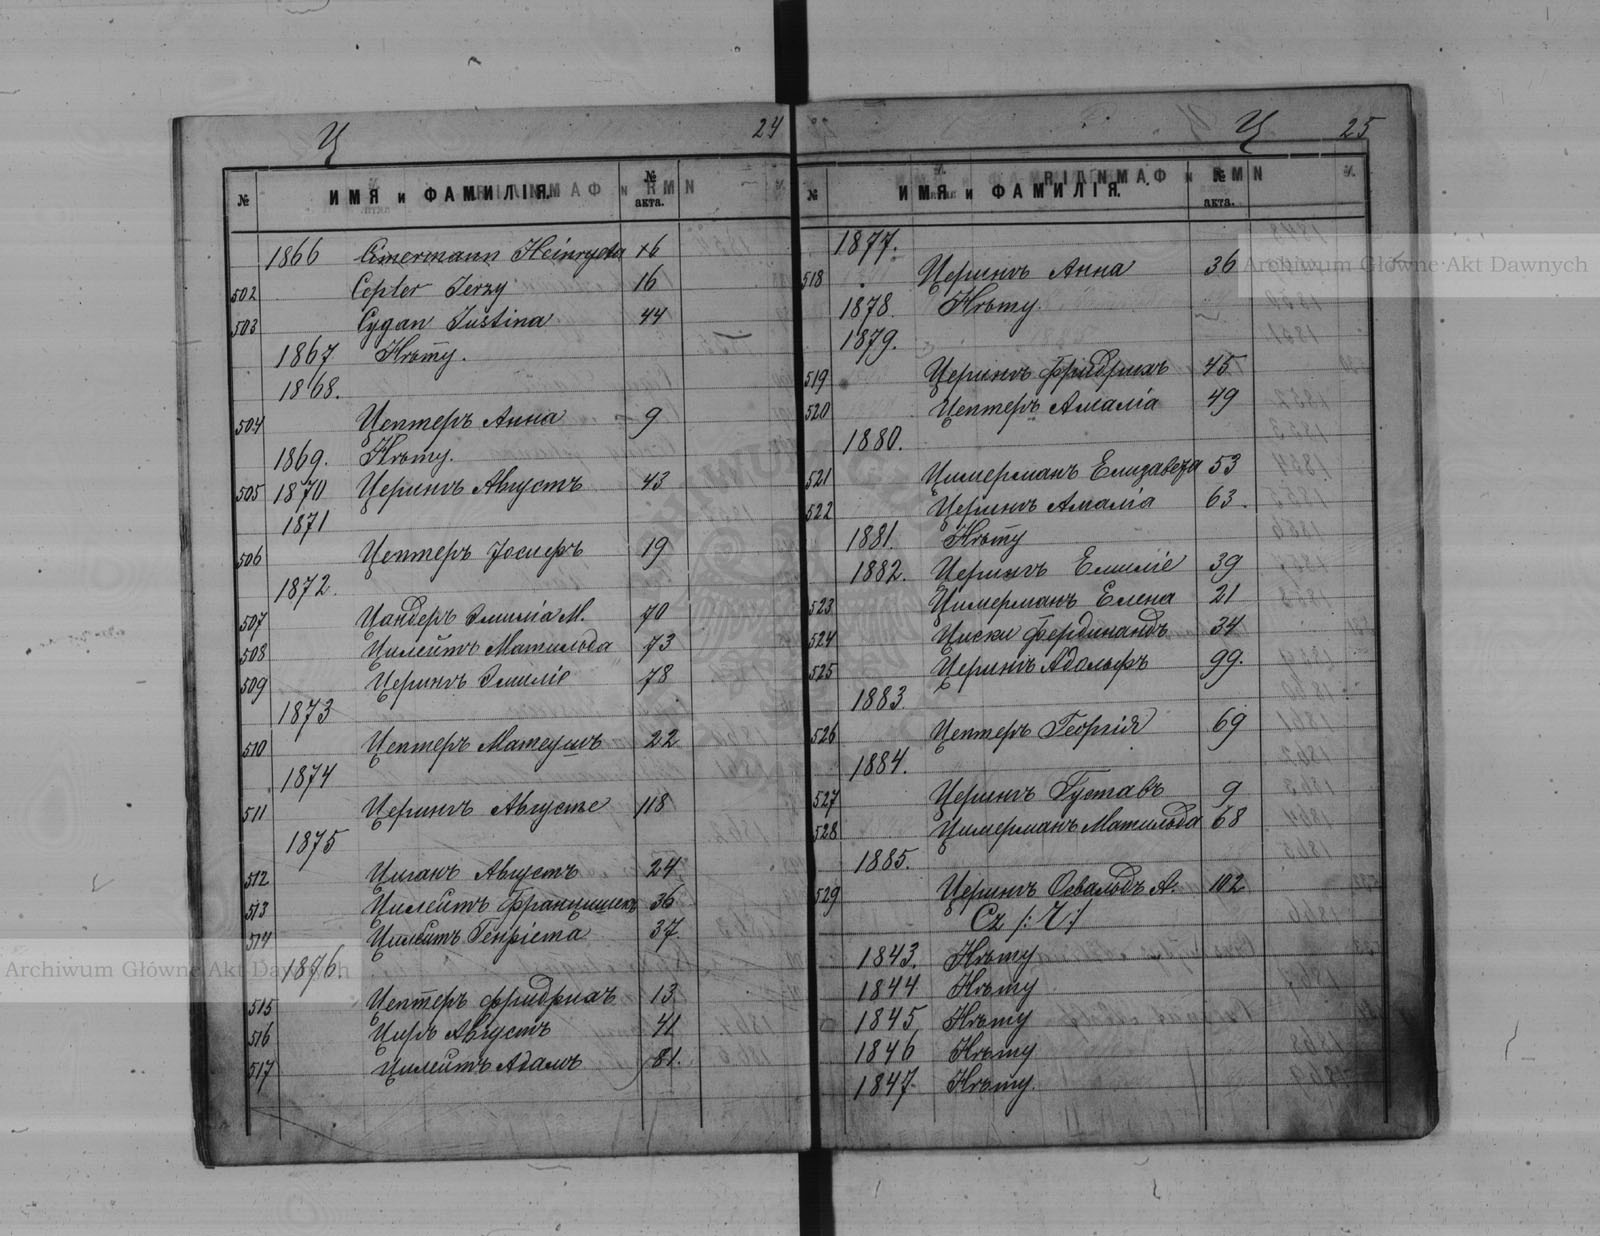 Ц 24
№ ИМЯ и ФАМИЛІЯ. № акта.
1866 Cimermann Heinryeta +6
502 Cepter Jerzy 16
503 Cygan Justina 44
1867 Нѣту.
1868.
504 Цептеръ Анна 9
1869. Нѣту.
505 1870 Церингъ Августъ 43
1871
506 Цептеръ Іосифъ 19
1872.
507 Цандеръ Эмилія М. 70
508 Цилейтъ Матильда 73
509 Церингъ Эмиліе 78
1873
510 Цептеръ Матеушъ 22
1874
511 Церингъ Августе 118
1875
512 Циганъ Августъ 24
513 Цилейтъ Францишекъ 36
514 Цилейтъ Генріета 37.
1876.
515 Цептеръ Фридрихъ 13
516 Августъ 41
517 Цилейтъ Адамъ 81.
Ц 25
№ ИМЯ и ФАМИЛІЯ. № акта.
1877.
518 Церингъ Анна 36
1878. Нѣту.
1879.
519 Церингъ Фридрихъ 45
520 Цептеръ Амалія 49
1880.
521 Цимерманъ Елизавета 53
522 Церингъ Амалія 63.
1881. Нѣту
1882. Церингъ Емиліе 39
523 Цимерманъ Елена 21
524 Циски Фердинандъ 34
525 Церингъ Адольфъ 99.
1883.
526 Цептеръ Георгій 69
1884.
527 Церингъ Густавъ 9
528 Цимерманъ Матильда 68
1885.
529 Церингъ Освальдъ А. 102
Cz /:Ч:/
1843. Нѣту
1844 Нѣту
1845 Нѣту
1846 Нѣту
1847. Нѣту.
Archiwum Główne Akt Dawnych
Archiwum Główne Akt Dawnych